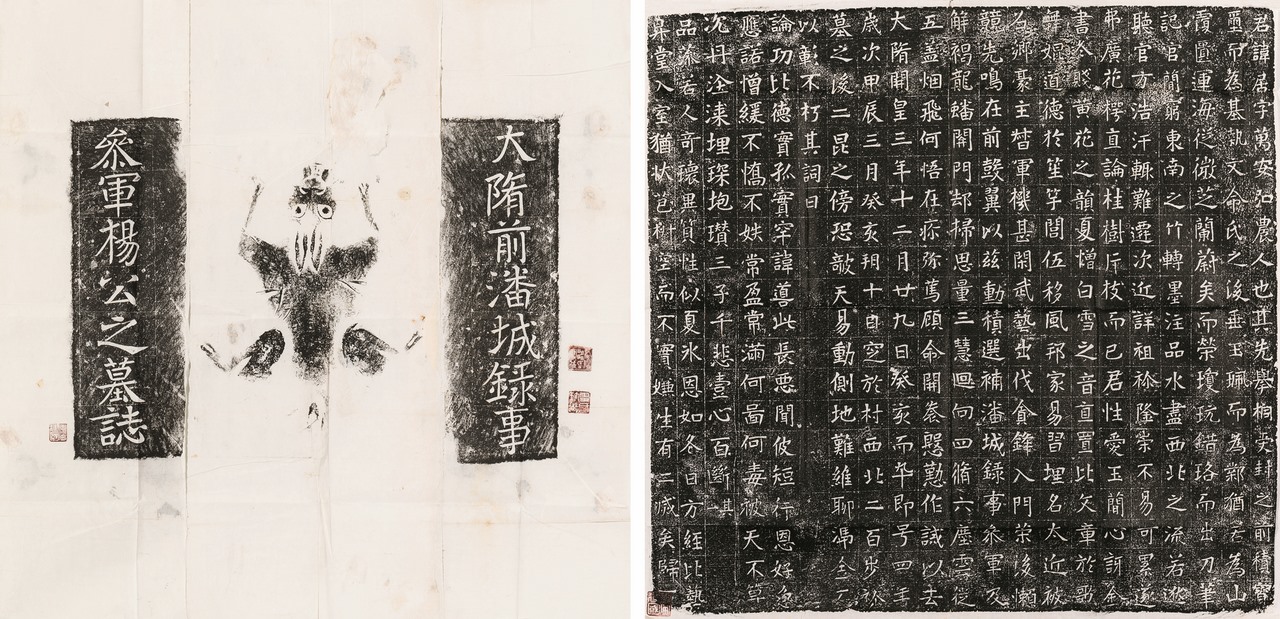 大隋前潘城錄事
叅軍楊公之墓誌
君諱居字萬安弘農人也其先桐受封之前積寶
璽而為基執文命氏之後垂玉珮而為鄣猶若為山
覆匱運海從微芝蘭蔚矣而榮瓊玩錯珞而出刀筆
記官簡窮東南之竹轉墨注品水盡西北之流若逝
聽官方浩汗輙難遷次近詳祖祢隆崇不易可累逐
弗廣花㮙直論桂樹斤枝而已君性愛玉簡心訝金
書令賤黃花之韻夏憎白雪之音直置比文章於歌
舞媲道德於笙竽閭伍移風邦家易習埋名太近被
召鄉豪主軍機甚閑武藝出伐貪鋒入門榮後懶
競先鳴在前鼓翼以茲勳積選補潘城錄事叅軍及
解褐龍蟠開門却掃思量三慧迴向四脩六塵雲從
五盖烟飛何悟在疢弥篤顧命開眷慇懃作誡以去
大隋開皇三年十二月廿九日癸亥而卒即号四年
歲次甲辰三月癸亥朔十日窆於村西北二百步祢
墓之後二昆之傍恐敲天易動側地難維聊馮金石
以彰不朽其詞曰
論功比德實孤實罕諱導此長惡聞彼短行恩好急
應語憎緩不憍不妷常盈常滿何啚何毒被天不早
沉丹淦湅埋琛垉瓚三子千悲壹心百斷其一
品叅若人奇瓌異質性似夏氷恩如冬日方經比藝
昇堂入室猶状芭樹空而不實生有二咸矣歸一